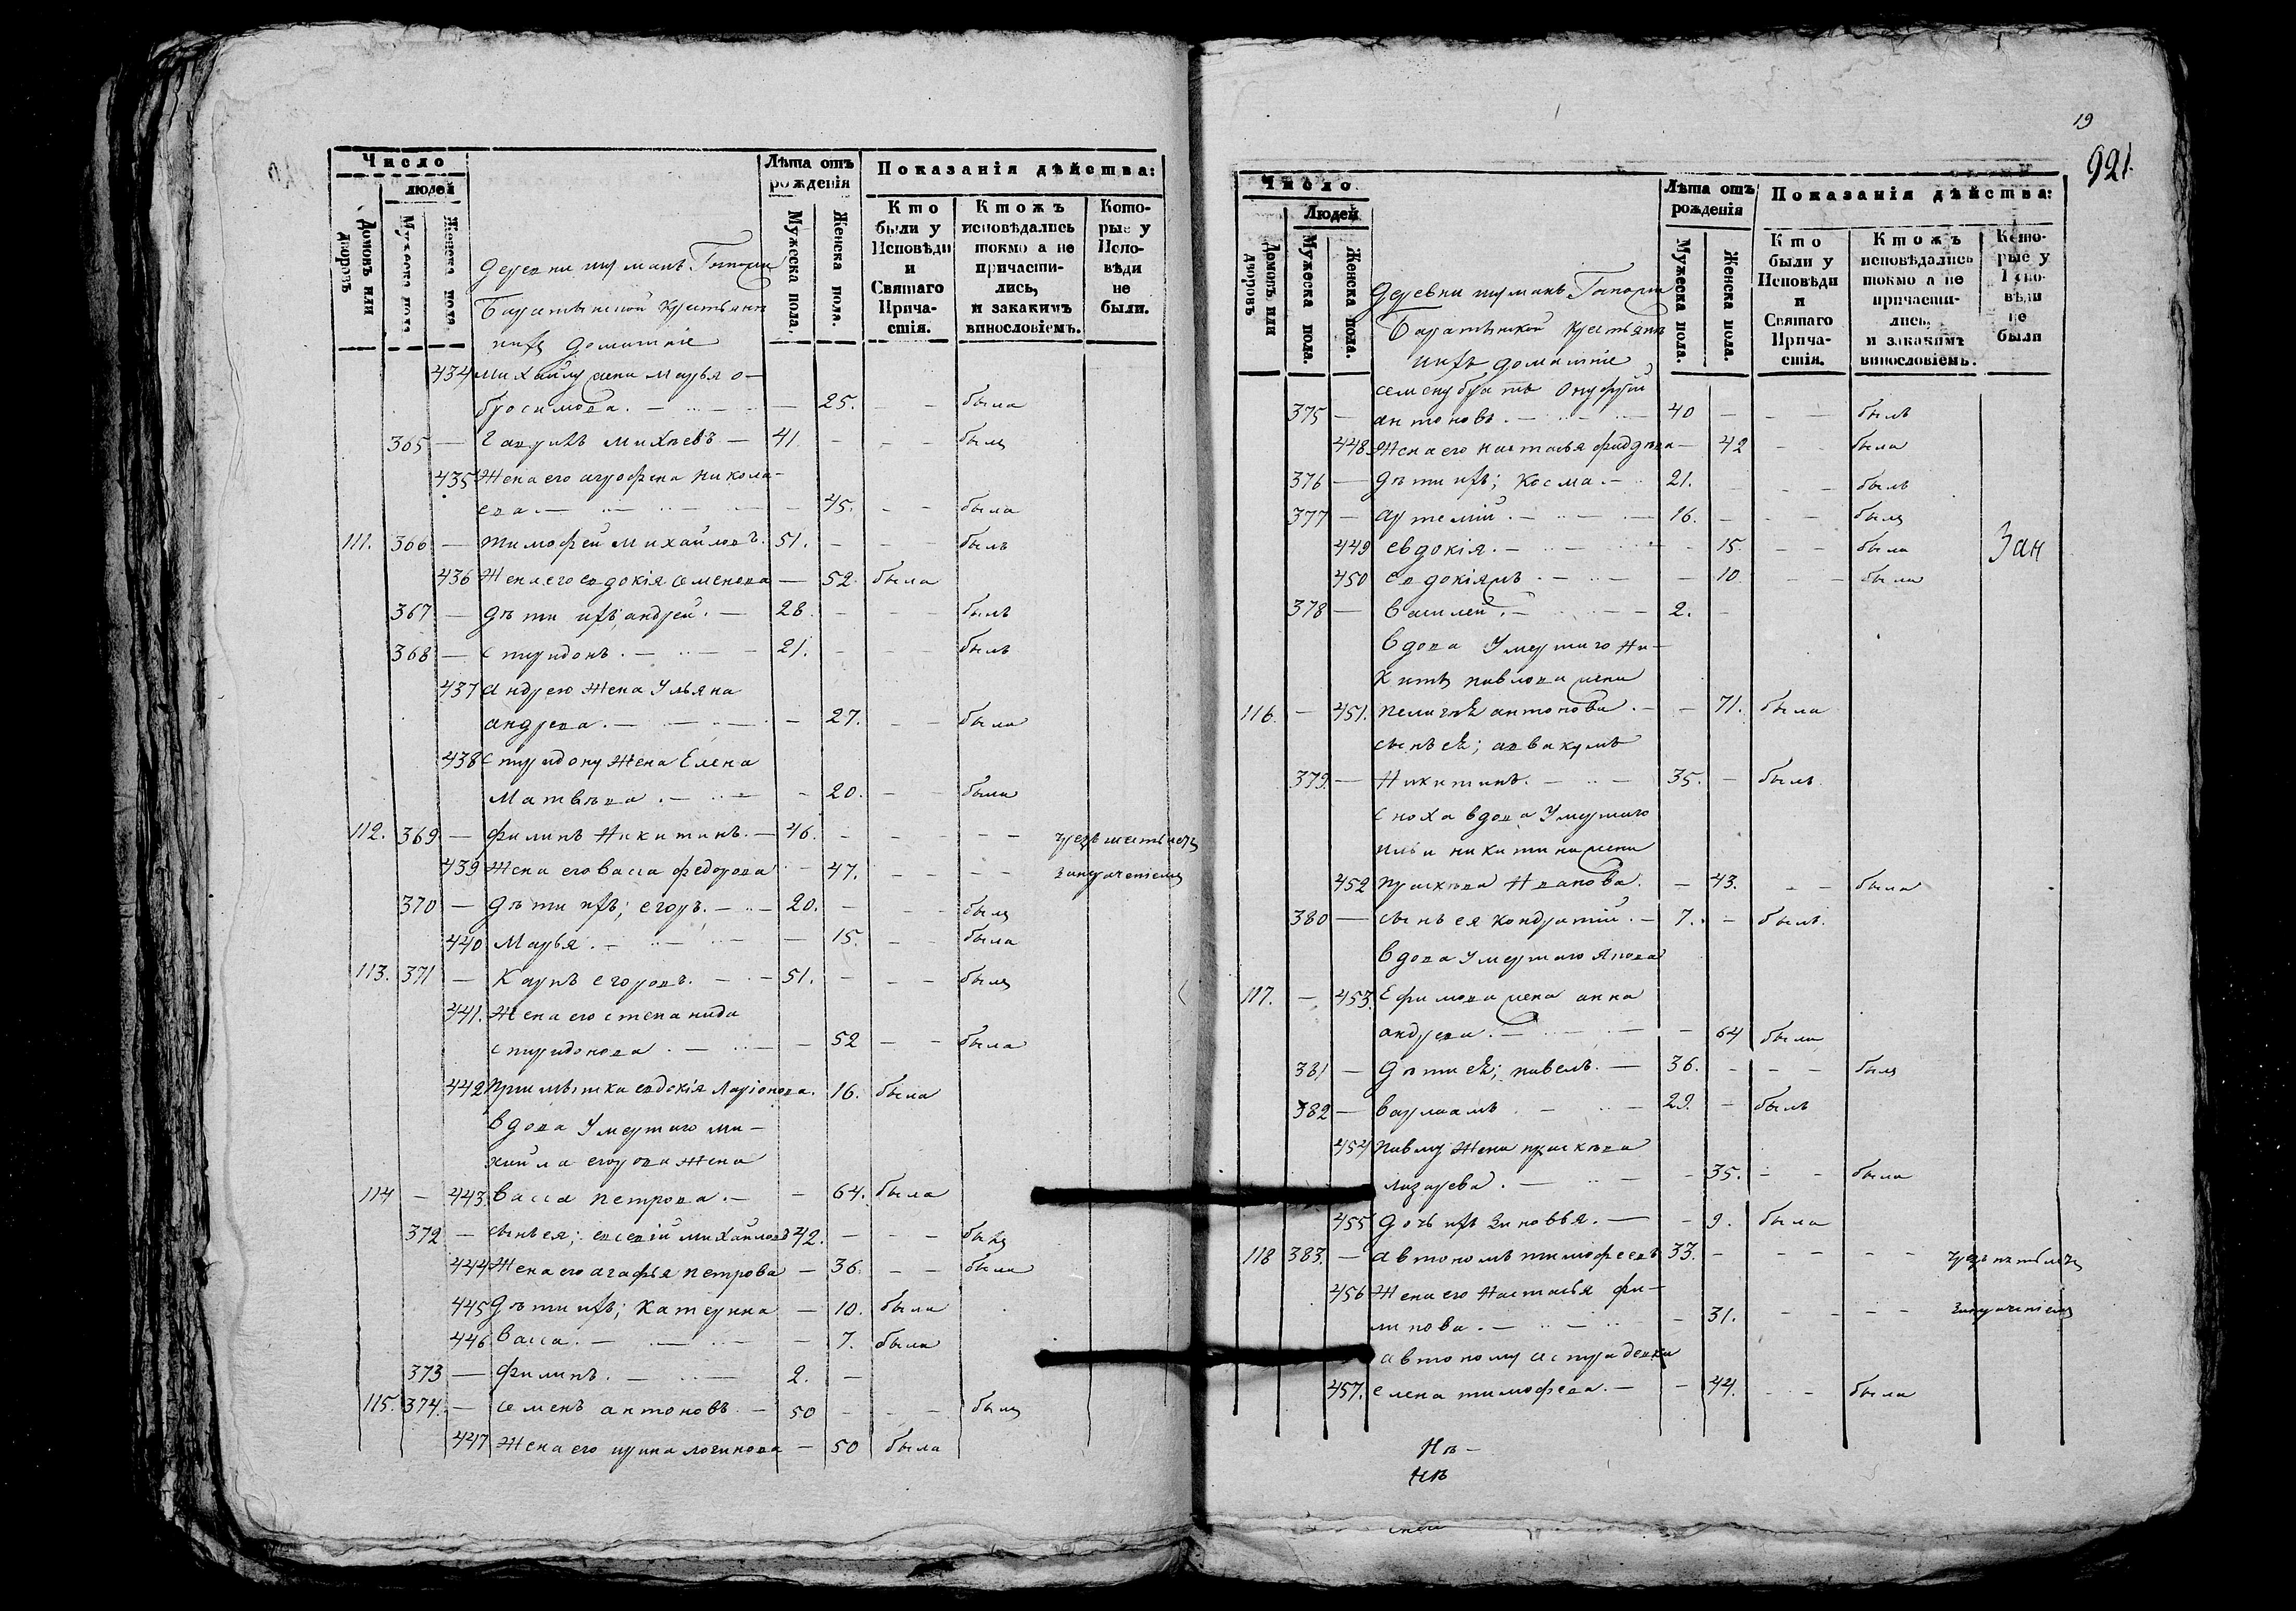 Число
людей
Домовъ или дворовъ
Мужеска пола.
Женска пола.
Лѣта отъ рожденія
Мужеска пола.
Женска пола.
Показанія дѣйства:
Кто были у Исповѣди и Святаго Причастія.
Ктожъ исповѣдались токмо а не причастились, и закакимъ винословіемъ.
Которые у Исповѣди не были.
деревни
крестьяне
ихъ домашніе
434 михайлу жена марья о-
бросимова. — 25. — была
365 — Гаврилъ михѣевъ — 41 — былъ
435 Жена его агрофена никола-
ева. — 45. — была
111. 366 — тимофей михайловъ. 51. — былъ
436 Жена его евдокія семенова — 52. была
367 — дѣти ихъ; андрей. — 28. — былъ
368 — спиридонъ. — 21. — былъ
437 андрею жена Ульяна
андрева. — 27. — была
438 спиридону жена Елена
Матвѣва. — 20. — была
112. 369 — филипъ Никитинъ. — 46. —
439 Жена его васса федорова — 47. —
370 — дѣти ихъ; егоръ. — 20. — былъ
440 Марья. — 15. — была
113. 371 — Карпъ егоровъ. — 51. — былъ
441. Жена его степанида
спиридонова. — 52 — была
442 евдокія Ларіонова. 16. была
вдова Умершаго ми-
хайла егорова жена
114 — 443. васса петрова. — 64. была
372 — сынъ ея; михайловъ 42. — былъ
444 Жена его агафья петрова — 36. — была
445 дѣти ихъ; катерина — 10. была
446 васса. — 7. была
373 — филипъ. — 2. —
115. 374. — семенъ антоновъ. — 50 — былъ
447 Жена его ирина логинова — 50 была
19
921.
Число
Людей
Домовъ или дворовъ
Мужеска пола.
Женска пола.
Лѣта отъ рожденія
Мужеска пола.
Женска пола.
Показанія дѣйства:
Кто были у Исповѣди и Святаго Причастія.
Ктожъ исповѣдались токмо а не причастились, и закакимъ винословіемъ.
Которые у Исповѣди не были
деревни
крестьянъ
ихъ домашніе
семену братъ Онуфрій
375 — антоновъ. — 40 — былъ
448. Жена его настасья — 42 — была
376 — дѣти ихъ; косма. — 21. — былъ
377 — артемій. — 16. — былъ
449 евдокія. — 15. — была
450 — 10. — была
378 — василей. — 2. —
вдова Умершаго Ни-
киты павлова жена
116. — 451. пелагѣя антонова. — 71. была
сынъ ея; аввакумъ
379. — Никитинъ. — 35. — былъ
сноха вдова Умершаго
ильи никитина жена
452 праскѣва Иванова. — 43. — была
380 — сынъ ея кондратій. — 7. — былъ.
вдова умершаго
117. — 453. Ефимова жена анна
андрева. — 64 была
381 — дѣти ея; павелъ. — 36. — былъ
382 — варлаамъ — 29. — былъ
454 павлу жена праскѣва
лазарева. — 35. — была
455 дочь ихъ Зиновья. — 9. была
118 383. — автономъ тимофеевъ 33. —
456 Жена его Настасья фи-
липова. — 31. —
автоному
457. елена тимофева. — 44. — была